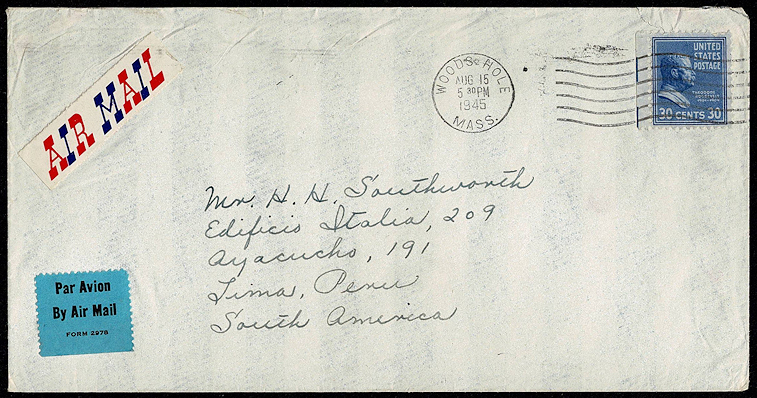 AIR MAIL
WOODS HOLE
AUG 15
5 30 PM
1945
MASS.
UNITED
STATES
POSTAGE
THEODORE
ROOSEVELT
30 CENTS 30
Mr. H. H. Southworth
Edificio Italia, 209
Ayacucho, 191
Lima, Peru
South America
Par Avion
By Air Mail
FORM 2978